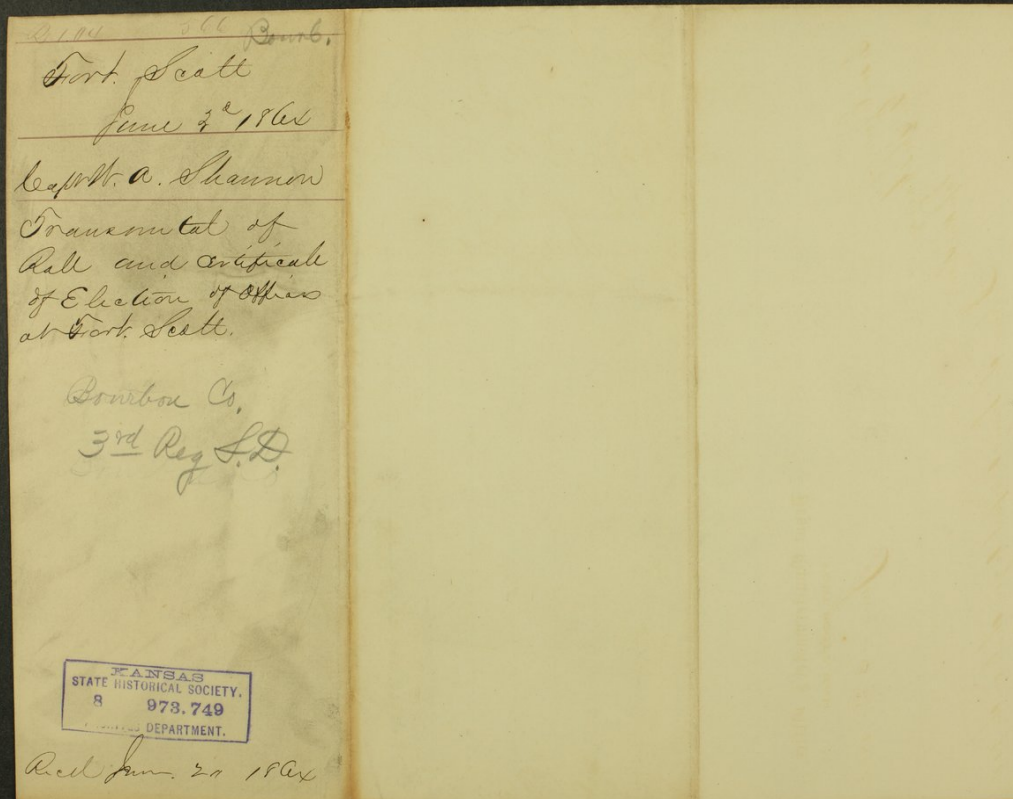 Bourb.
Fort. Scott
June 2d 1864
Capt W. A. Shannon
Transmital of
Roll and certificate
of Election of Officers
at Fort. Scott.
Bourbon Co.
3rd Reg S.D.
KANSAS
STATE HISTORICAL SOCIETY.
8 973.749
DEPARTMENT.
Recd June 1864